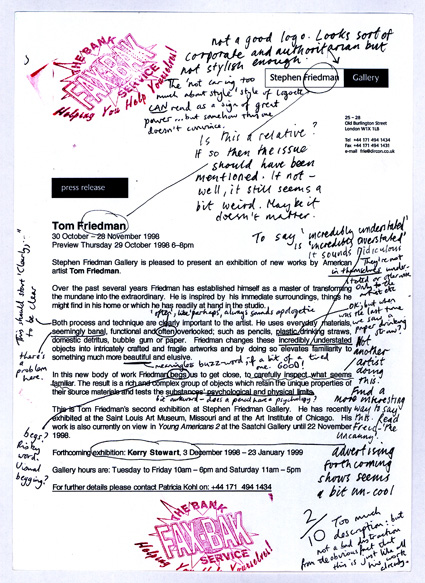 THE BANK
FAX-BAK
SERVICE
Helping You Help Yourselves!
not a good logo. Looks sort of
corporate and authoritarian but
not stylish enough.
Stephen Friedman Gallery
The 'not caring too
much about style' style of logo
CAN read as a sign of great
power... but somehow this one
doesn't convince.
25 – 28
Old Burlington Street
London W1X 1LB
Tel +44 171 494 1434
Fax +44 171 494 1431
e-mail frie@dircon.co.uk
Is this a relative?
If so then the issue
should have been
mentioned. If not –
well, it still seems a
bit weird. Maybe it
doesn't matter.
press release
Tom Friedman
30 October – 28 November 1998
Preview Thursday 29 October 1998 6–8pm
To say 'incredibly understated'
is 'incredibly overstated'
It sounds ridiculous
Stephen Friedman Gallery is pleased to present an exhibition of new works by American
artist Tom Friedman.
Over the past several years Friedman has established himself as a master of transforming
the mundane into the extraordinary. He is inspired by his immediate surroundings, things he
might find in his home or which he has readily at hand in the studio.
'often', like perhaps, always sounds apologetic
Both process and technique are clearly important to the artist. He uses everyday materials,
seemingly banal, functional and often overlooked; such as pencils, plastic drinking straws,
domestic detritus, bubble gum or paper. Friedman changes these incredibly understated
objects into intricately crafted and fragile artworks and by doing so elevates familiarity to
something much more beautiful and elusive.
meaningless buzz-word if a bit of a tired
one. GOOD!
In this new body of work Friedman begs us to get close, to carefully inspect what seems
familiar. The result is a rich and complex group of objects which retain the unique properties of
their source materials and tests the substances' psychological and physical limits.
does a pencil have psychology?
This is Tom Friedman's second exhibition at Stephen Friedman Gallery. He has recently
exhibited at the Saint Louis Art Museum, Missouri and at the Art Institute of Chicago. His
work is also currently on view in Young Americans 2 at the Saatchi Gallery until 22 November
1998.
Forthcoming exhibition: Kerry Stewart, 3 December 1998 – 23 January 1999
Gallery hours are: Tuesday to Friday 10am – 6pm and Saturday 11am – 5pm
For further details please contact Patricia Kohl on: +44 171 494 1434
This should start 'Clearly,...'
to be clear
there's a
problem
here.
begs?
risky
word.
Visual
begging?
They're not
in themselves under-
stated
OK, but when
was the last time
we say a
paper drinking
straw?
Not
another
artist
doing
this.
Find a
more interesting
way to say
this. Read
Freud 'The
Uncanny'.
advertising
forthcoming
shows seems
a bit un-cool
2/10
Too much
description: but
not a bad distraction
from the obvious fact that
this is just like all
his work already.
THE BANK
FAX-BAK
SERVICE
Helping You Help Yourselves!